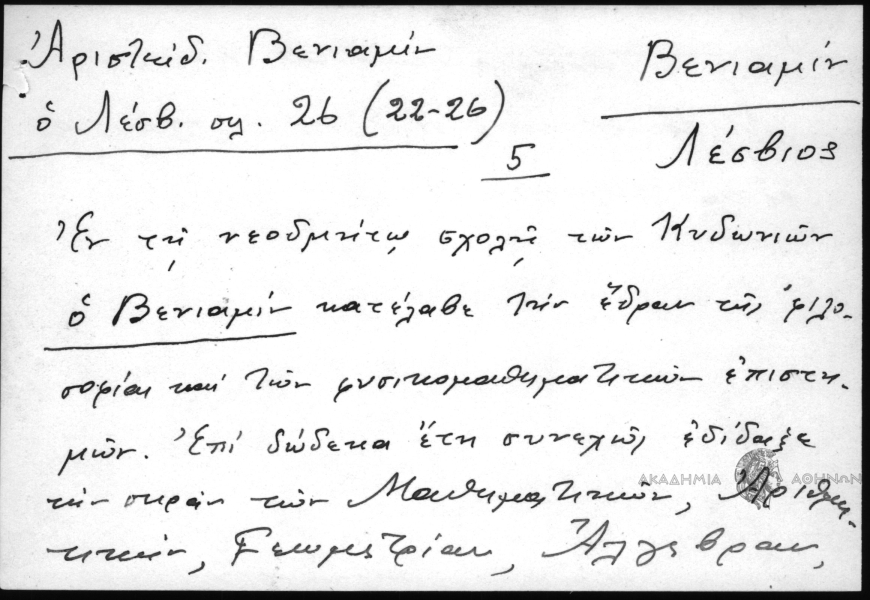 Ἀριστείδ. Βενιαμίν
ὁ Λέσβ. σελ. 26 (22-26)
5
Βενιαμίν
Λέσβιος
Ἐν τῇ νεοδμήτῳ σχολῇ τῶν Κυδωνιῶν
ὁ Βενιαμίν κατέλαβε τὴν ἕδραν τῆς φιλο-
σοφίας καί τῶν φυσικομαθηματικῶν ἐπιστη-
μῶν. Ἐπί δώδεκα ἔτη συνεχῶς ἐδίδαξε
τὴν σειράν τῶν Μαθηματικῶν, Ἀριθμη-
τικήν, Γεωμετρίαν, Ἄλγεβραν,
ΑΚΑΔΗΜΙΑ ΑΘΗΝΩΝ